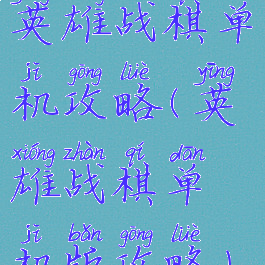 英雄战棋单
jī gōng lüè yīng
机攻略(英
xióng zhàn qí dān
雄战棋单
jī bǎn gōng lüè
机版攻略)